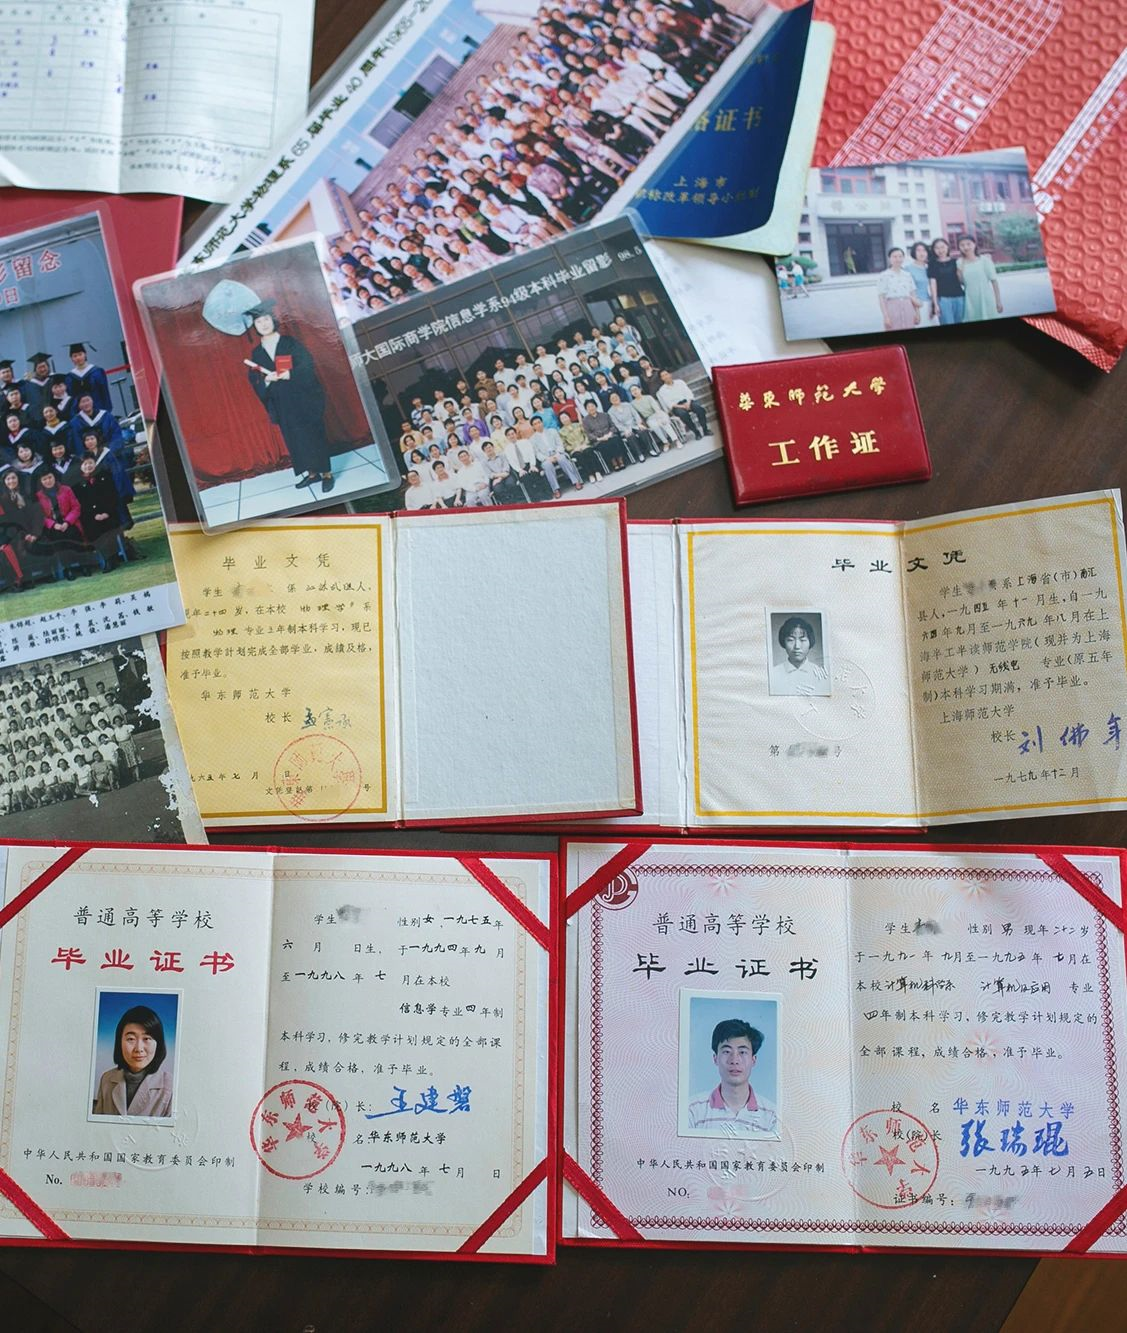 大学物理系65届毕业40周年(1965-20
格证书
上海市
职称改革领导小组制
影留念
师大国际商学院信息学系94级本科毕业留影 98.5
華东师范大学
工作证
毕业文凭
学生 系江苏武进人,
现年二十四岁,在本校 物理学 系
物理 专业五年制本科学习,现已
按照教学计划完成全部学业,成绩及格,
准予毕业。
华东师范大学
校长 孟宪承
九六五年七月 日
文凭登记第 号
毕业文凭
第 号
学生 系上海省(市)南汇
县人,一九四五年十一月生,自一九
六四年九月至一九六九年八月在上
海半工半读师范学院(现并为上海
师范大学)无线电 专业(原五年
制)本科学习期满,准予毕业。
上海师范大学
校长 刘佛年
一九七九年十二月
普通高等学校
毕业证书
中华人民共和国国家教育委员会印制
No.
学生 性别女,一九七五年
六月 日生,于一九九四年九月
至一九九八年七月在本校
信息学专业四年制
本科学习,修完教学计划规定的全部课
程,成绩合格,准予毕业。
校(院)长:王建磐
校名:华东师范大学
一九九八年七月 日
学校编号:
普通高等学校
毕业证书
中华人民共和国国家教育委员会印制
NO:
学生 性别男 现年二十二岁
于一九九一年九月至一九九五年七月在
本校计算机科学系 计算机及应用 专业
四年制本科学习,修完教学计划规定的
全部课程,成绩合格,准予毕业。
校名 华东师范大学
校(院)长 张瑞琨
一九九五年七月五日
证书编号: